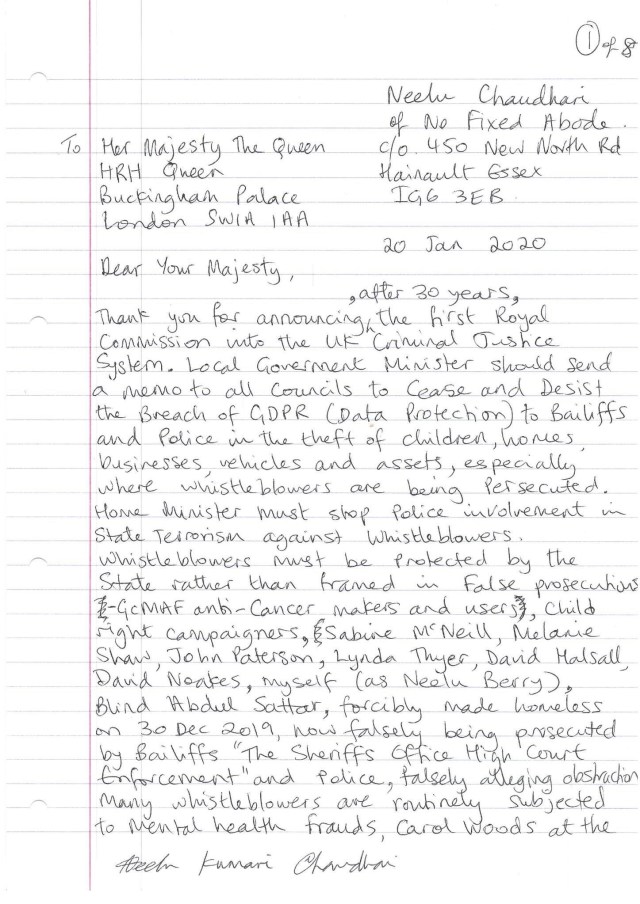 1 of 8
Neelu Chaudhari
of No Fixed Abode.
To Her Majesty The Queen c/o. 450 New North Rd
HRH Queen Hainault Essex
Buckingham Palace IG6 3EB.
London SW1A 1AA
20 Jan 2020
Dear Your Majesty,
, after 30 years,
Thank you for announcing the first Royal
Commission into the UK Criminal Justice
System. Local Goverment Minister should send
a memo to all Councils to Cease and Desist
the Breach of GDPR (Data Protection) to Bailiffs
and Police in the theft of children, homes,
businesses, vehicles and assets, especially
where whistleblowers are being Persecuted.
Home Minister must stop Police involvement in
State Terrorism against Whistleblowers.
Whistleblowers must be protected by the
State rather than framed in False prosecutions
-GcMAF anti-Cancer makers and users, Child
right campaigners, Sabine McNeill, Melanie
Shaw, John Paterson, Lynda Thyer, David Halsall,
David Noakes, myself (as Neelu Berry),
Blind Abdul Sattar, forcibly made homeless
on 30 Dec 2019, now falsely being prosecuted
by Bailiffs "The Sheriffs Office High Court
Enforcement" and Police, falsely alleging obstruction
Many whistleblowers are routinely subjected
to Mental health frauds, Carol Woods at the
Neelu Kumari Chaudhari